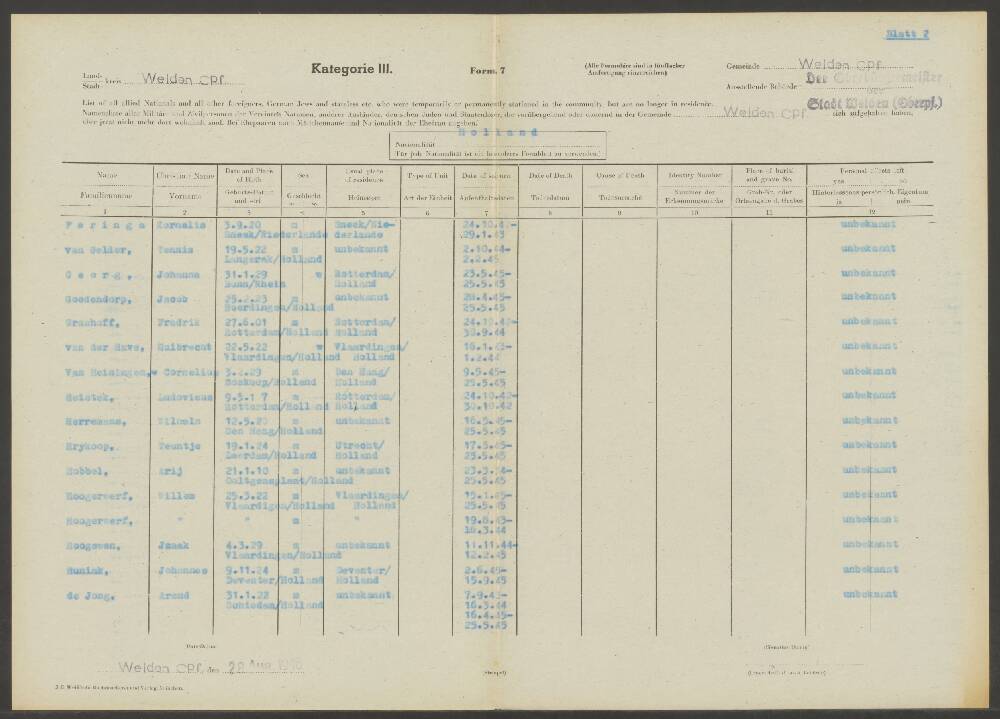 Blatt 2
Land- kreis Weiden OPf.
Stadt-
Kategorie III.
Form. 7
(Alle Formulare sind in fünffacher
Ausfertigung einzureichen)
Gemeinde Weiden OPf.
Ausstellende Behörde Der Oberbürgermeister
der
Stadt Weiden (Oberpf.)
List of all allied Nationals and all other foreigners, German Jews and stateless etc. who were temporarily or permanently stationed in the community, but are no longer in residence.
Namensliste aller Militär- und Zivilpersonen der Vereinten Nationen, anderer Ausländer, deutschen Juden und Staatenloser, die vorübergehend oder dauernd in der Gemeinde Weiden OPf. sich aufgehalten haben,
aber jetzt nicht mehr dort wohnhaft sind. Bei Ehepaaren auch Mädchenname und Nationalität der Ehefrau angeben.
Holland
Nationalität
(Für jede Nationalität ist ein besonderes Formblatt zu verwenden)
Name Christian Name Date and Place of Birth Sex Usual place of residence Type of Unit Date of sojourn Date of Death Cause of Death Identity Number Place of burial and grave No. Personal effects left yes no
Familienname Vorname Geburts-Datum und -ort Geschlecht Heimatort Art der Einheit Aufenthaltsdaten Todesdatum Todesursache Nummer der Erkennungsmarke Grab-Nr. oder Ortsangabe d. Grabes Hinterlassenes persönlich. Eigentum ja nein
1 2 3 4 5 6 7 8 9 10 11 12
Feringa Kornelis 3.9.20 m Sneek/Nie- 24.10.4.- unbekannt
Sneek/Niederlande derlande 29.1.43
van Gelder, Tennis 19.5.22 m unbekannt 2.10.44- unbekannt
Langerak/Holland 2.2.45
Georg, Johanna 31.1.29 w Rotterdam/ 23.5.45- unbekannt
Bonn/Rhein Holland 25.5.45
Goedendorp, Jacob 25.2.23 m unbekannt 28.4.45- unbekannt
Heerdingen/Holland 25.5.45
Grashoff, Fredrik 27.6.01 m Rotterdam/ 24.10.42- unbekannt
Rotterdam/Holland Holland 30.9.44
van der Have, Huibrecht 22.5.22 w Vlaardingen/ 16.1.43- unbekannt
Vlaardingen/Holland Holland 1.2.44
Van Heiningen, Cornelius 3.2.29 m Den Haag/ 9.5.45- unbekannt
Boskoop/Holland Holland 25.5.45
Heistek, Ludovicus 9.5.17 m Rotterdam/ 24.10.42- unbekannt
Rotterdam/Holland Holland 30.10.42
Herremans, Wilhelm 12.5.20 m unbekannt 16.5.45- unbekannt
Den Haag/Holland 25.5.45
Hrykoop, Teuntje 19.1.24 m Utrecht/ 17.5.45- unbekannt
Leerdam/Holland Holland 25.5.45
Hobbel, Arij 21.1.10 m unbekannt 23.3.44- unbekannt
Ooltgensplaat/Holland 25.5.45
Hoogerwerf, Willem 25.3.22 m Vlaardingen/ 15.1.45- unbekannt
Vlaardigen/Holland Holland 25.5.45
Hoogerwerf, " " m " 19.6.43- unbekannt
16.3.44
Hoogeween, Izaak 4.3.29 m unbekannt 11.11.44- unbekannt
Vlaardingen/Holland 12.2.45
Hunink, Johannes 9.11.24 m Deventer/ 2.6.45- unbekannt
Deventer/Holland Holland 15.9.45
de Jong, Arend 31.1.22 m unbekannt 7.9.43- unbekannt
Schiedam/Holland 16.3.44
16.4.45-
25.5.45
Weiden OPf., den 28 Aug. 1946
(Stempel)